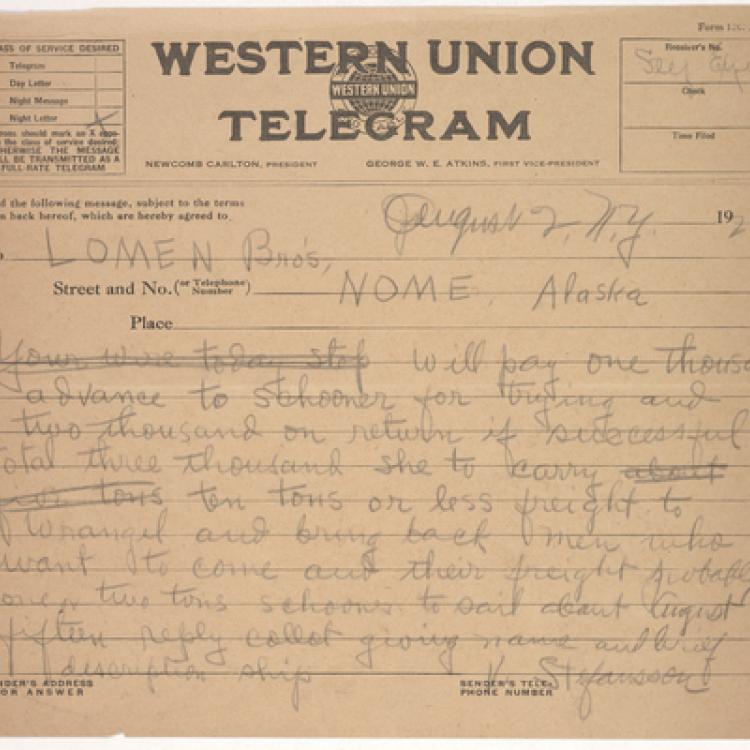 Form 120
ASS OF SERVICE DESIRED
Telegram
Day Letter
Night Message
Night Letter X
rons should mark an X oppo-
the class of service desired:
HERWISE THE MESSAGE
LL BE TRANSMITTED AS A
FULL-RATE TELEGRAM
WESTERN UNION
WESTERN UNION
TELEGRAM
NEWCOMB CARLTON, PRESIDENT GEORGE W. E. ATKINS, FIRST VICE-PRESIDENT
Receiver's No.
Check
Time Filed
d the following message, subject to the terms
n back hereof, which are hereby agreed to
August 2, N.Y. 192
LOMEN Bros,
Street and No. (or Telephone Number) NOME, Alaska
Place
Your wire today stop Will pay one thousa
advance to schooner for trying and
two thousand on return if successful
total three thousand she to carry about
tons ten tons or less freight to
Wrangel and bring back men who
want to come and their freight probabl
one or two tons schooner to sail about August
fifteen reply collect giving name and brief
description ship V. Stefansson
NDER'S ADDRESS
OR ANSWER
SENDER'S TELE-
PHONE NUMBER